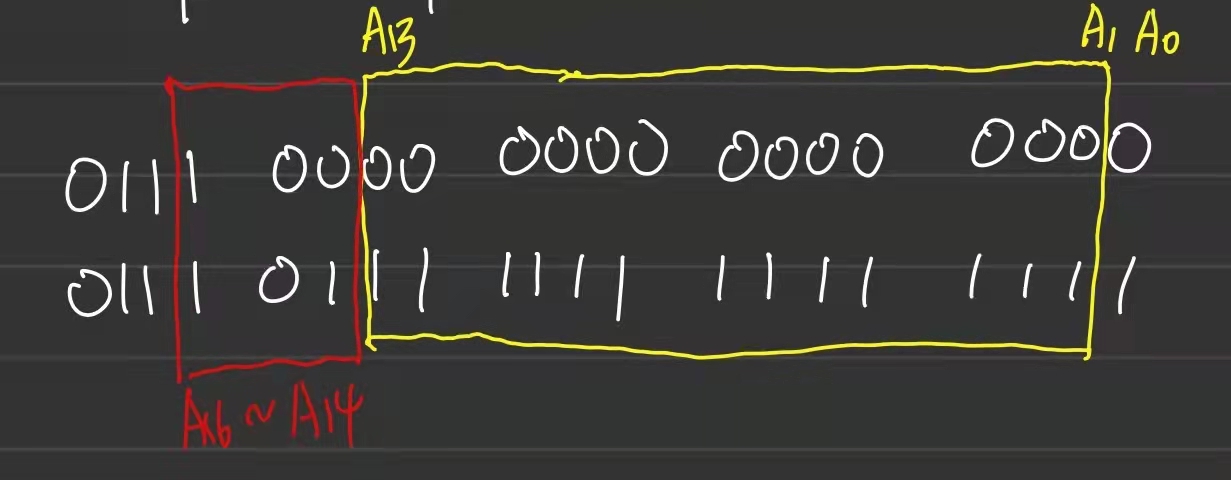 A13 A1 A0
0111 0000 0000 0000 0000
0111 0111 1111 1111 1111
A16 ~ A14